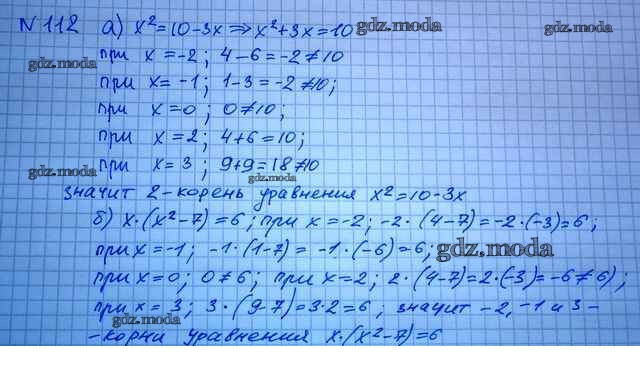 №112 а) x²=10-3x⇒x²+3x=10 gdz.moda
при x=-2; 4-6=-2≠10
gdz.moda gdz.moda
при x=-1; 1-3=-2≠10;
при x=0; 0≠10;
gdz.moda
при x=2; 4+6=10;
при x=3; 9+9=18≠10
gdz.moda gdz.moda
значит 2-корень уравнения x²=10-3x
б) x·(x²-7)=6; при x=-2; -2·(4-7)=-2·(-3)=6;
gdz.moda
при x=-1; -1·(1-7)=-1·(-6)=6; gdz.moda
при x=0; 0≠6; при x=2; 2·(4-7)=2·(-3)=-6≠6);
при x=3; 3·(9-7)=3·2=6; значит -2,-1 и 3-
gdz.moda gdz.moda
-корни уравнения x·(x²-7)=6